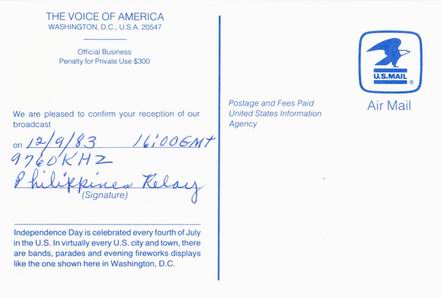 THE VOICE OF AMERICA
WASHINGTON, D.C., U.S.A. 20547
Official Business
Penalty for Private Use $300
We are pleased to confirm your reception of our
broadcast
on 12/9/83 16:00GMT
9760KHZ
Philippines Relay
(Signature)
Independence Day is celebrated every fourth of July
in the U.S. In virtually every U.S. city and town, there
are bands, parades and evening fireworks displays
like the one shown here in Washington, D.C.
Postage and Fees Paid
United States Information
Agency
U.S.MAIL
Air Mail